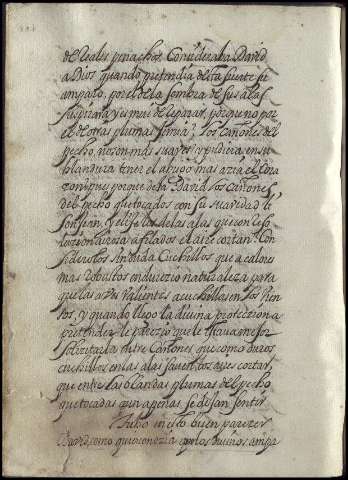 de Reales penachos. Consideraba David
a Dios quando pretendia desta suerte su
amparo, por el de la sombra de sus alas
suspirara, y es mui de reparar, porque no por
el de otras plumas fervia? los cañones del
pecho no son mas suaves y pudiera en su
blandura tener el abrigo mas azia el Cora
zon pues porque deja David los cañones
del pecho que tocados con su suavidad li
sonjean, y elije los de las alas que con
afilados el aire cortan? Con
Cuchillos que a calores
mas robustos endurezio naturaleza para
que las aves valientes acuchillasen los Vien
tos, y quando llego la divina proteccion a
pretender le parezio que le estava mejor
solizitarla entre Cañones que como duros
cuchillos en las alas savent los aires cortar,
que entre las blandas plumas del pecho
que tocadas aun apenas se dejan sentir.
Tubo en esto buen parezer
David, como quien conozia que los buenos ampa